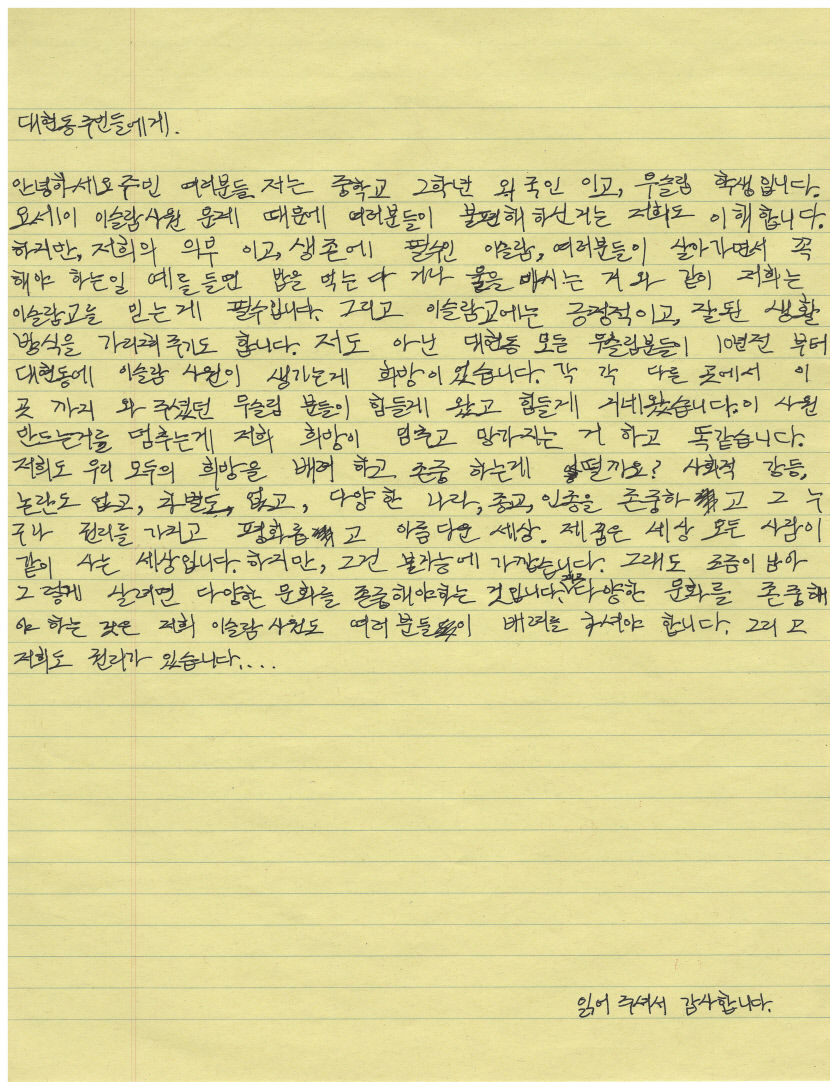 대현동주민들에게.
안녕하세요 주민 여러분들 저는 중학교 2학년 외국인 이고, 무슬림 학생입니다.
요세이 이슬람사원 문제 때문에 여러분들이 불편해 하신거는 저희도 이해합니다.
하지만, 저희의 의무 이고, 생존에 필수인 이슬람, 여러분들이 살아가면서 꼭
해야 하는일 예를 들면 밥을 먹는 다 거나 물을 마시는 거 와 같이 저희는
이슬람교를 믿는게 필수입니다. 그리고 이슬람교에는 긍정적이고, 잘된 생활
방식을 가리켜 주기도 합니다. 저도 아닌 대현동 모든 무슬림분들이 10년전 부터
대현동에 이슬람 사원이 생기는게 희망이었습니다. 각 각 다른 곳에서 이
곳 까지 와 주셨던 무슬림 분들이 힘들게 왔고 힘들게 지내왔습니다. 이 사원
만드는거를 멈추는게 저희 희망이 멈추고 망가지는 거 하고 똑같습니다.
저희도 우리 모두의 희망을 배려 하고 존중 하는게 어떨까요? 사회적 갈등,
논란도 없고, 차별도, 없고, 다양한 나라, 종교, 인종을 존중하고 그 누
구나 권리를 가지고 평화롭고 아름다운 세상. 제 꿈은 세상 모든 사람이
같이 사는 세상입니다. 하지만, 그건 불가능에 가깝습니다. 그래도 조금이 남아
그렇게 살려면 다양한 문화를 존중해야하는 것입니다. 다양한 문화를 존중해
야 하는 것은 저희 이슬람 사원도 여러분들이 배려를 하셔야 합니다. 그리고
저희도 권리가 있습니다....
읽어 주셔서 감사합니다.